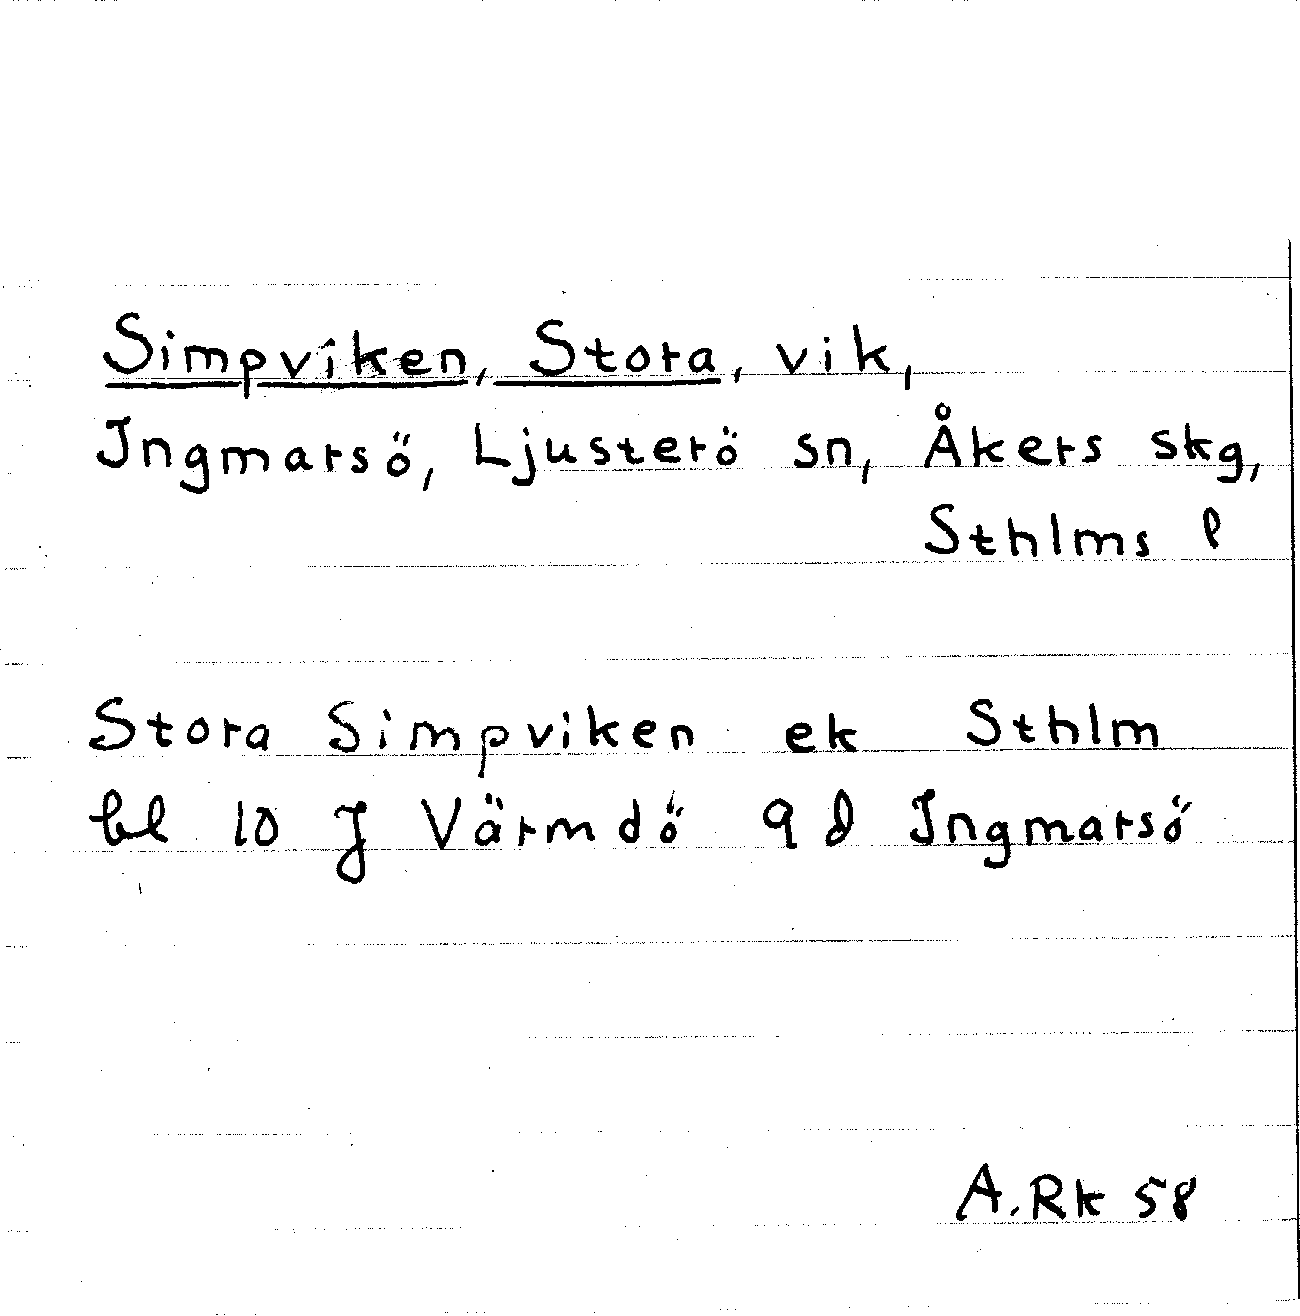 Simpviken, Stora, vik,
Ingmarsö, Ljusterö sn, Åkers skg,
Sthlms l
Stora Simpviken ek Sthlm
bl 10 J Värmdö 9 d Ingmarsö
A.Rk 58